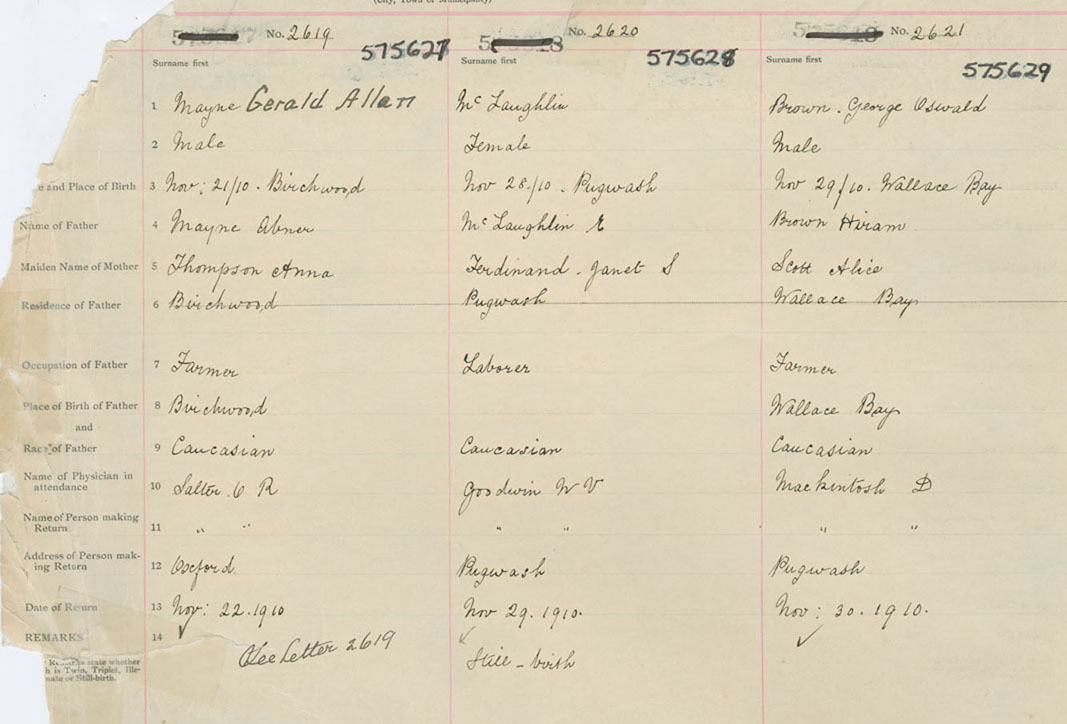 (City, Town or Municipality)
No. 2619 No. 2620 No. 2621
575627 575628 575629
Surname first Surname first Surname first
1 Mayne Gerald Allan Mc Laughlin Brown. George Oswald
2 Male Female Male
e and Place of Birth 3 Nov: 21/10. Birchwood Nov 28/10. Pugwash Nov 29/10. Wallace Bay
Name of Father 4 Mayne Abner Mc Laughlin E Brown Hiram
Maiden Name of Mother 5 Thompson Anna Ferdinand. Janet S Scott Alice
Residence of Father 6 Birchwood Pugwash Wallace Bay
Occupation of Father 7 Farmer Laborer Farmer
Place of Birth of Father 8 Birchwood Wallace Bay
and
Race of Father 9 Caucasian Caucasian Caucasian
Name of Physician in
attendance 10 Salter. C R Goodwin W V Mackintosh D
Name of Person making
Return 11 " " " " " "
Address of Person mak-
ing Return 12 Oxford Pugwash Pugwash
Date of Return 13 Nov: 22. 1910 Nov 29. 1910. Nov: 30. 1910.
REMARKS 14 ✓ ✓ ✓
See Letter 2619 Still-birth
Remarks state whether
h is Twin, Triplet, Ille-
nate or Still-birth.